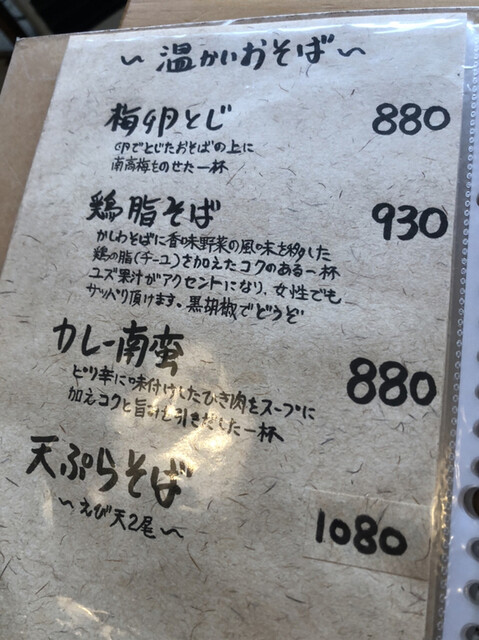 〜 温かいおそば 〜
梅卵とじ 880
卵でとじたおそばの上に
南高梅をのせた一杯
鶏脂そば 930
かしわそばに香味野菜の風味を移した
鶏の脂(チーユ)を加えたコクのある一杯
ユズ果汁がアクセントになり、女性でも
サッパリ頂けます。黒胡椒でどうぞ
カレー南蛮 880
ピリ辛に味付けしたひき肉をスープに
加えコクと旨みを引きだした一杯
天ぷらそば 1080
〜えび天2尾〜